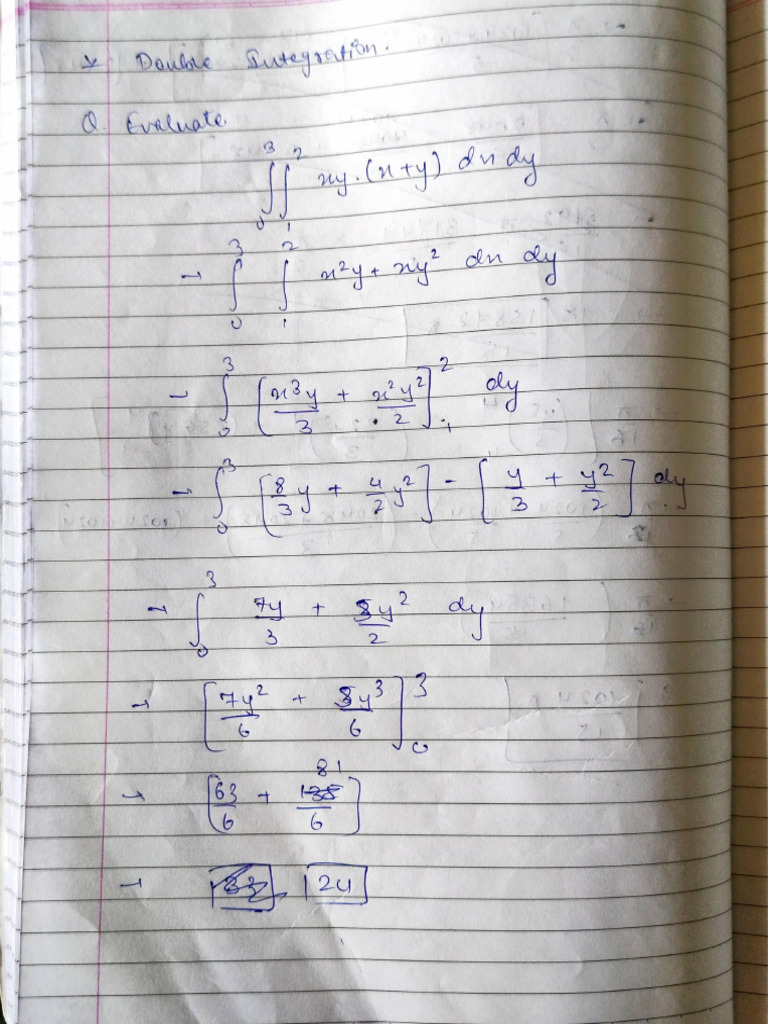 * Double Integration.
Q. Evaluate
∫₀³ ∫₁² xy.(x+y) dx dy
→ ∫₀³ ∫₁² x²y + xy² dx dy
→ ∫₀³ [x³y/3 + x²y²/2]₁² dy
→ ∫₀³ [8/3 y + 4/2 y²] - [y/3 + y²/2] dy
→ ∫₀³ 7y/3 + 3y²/2 dy
→ [7y²/6 + 3y³/6]₀³
→ [63/6 + 81/6]
→ 24